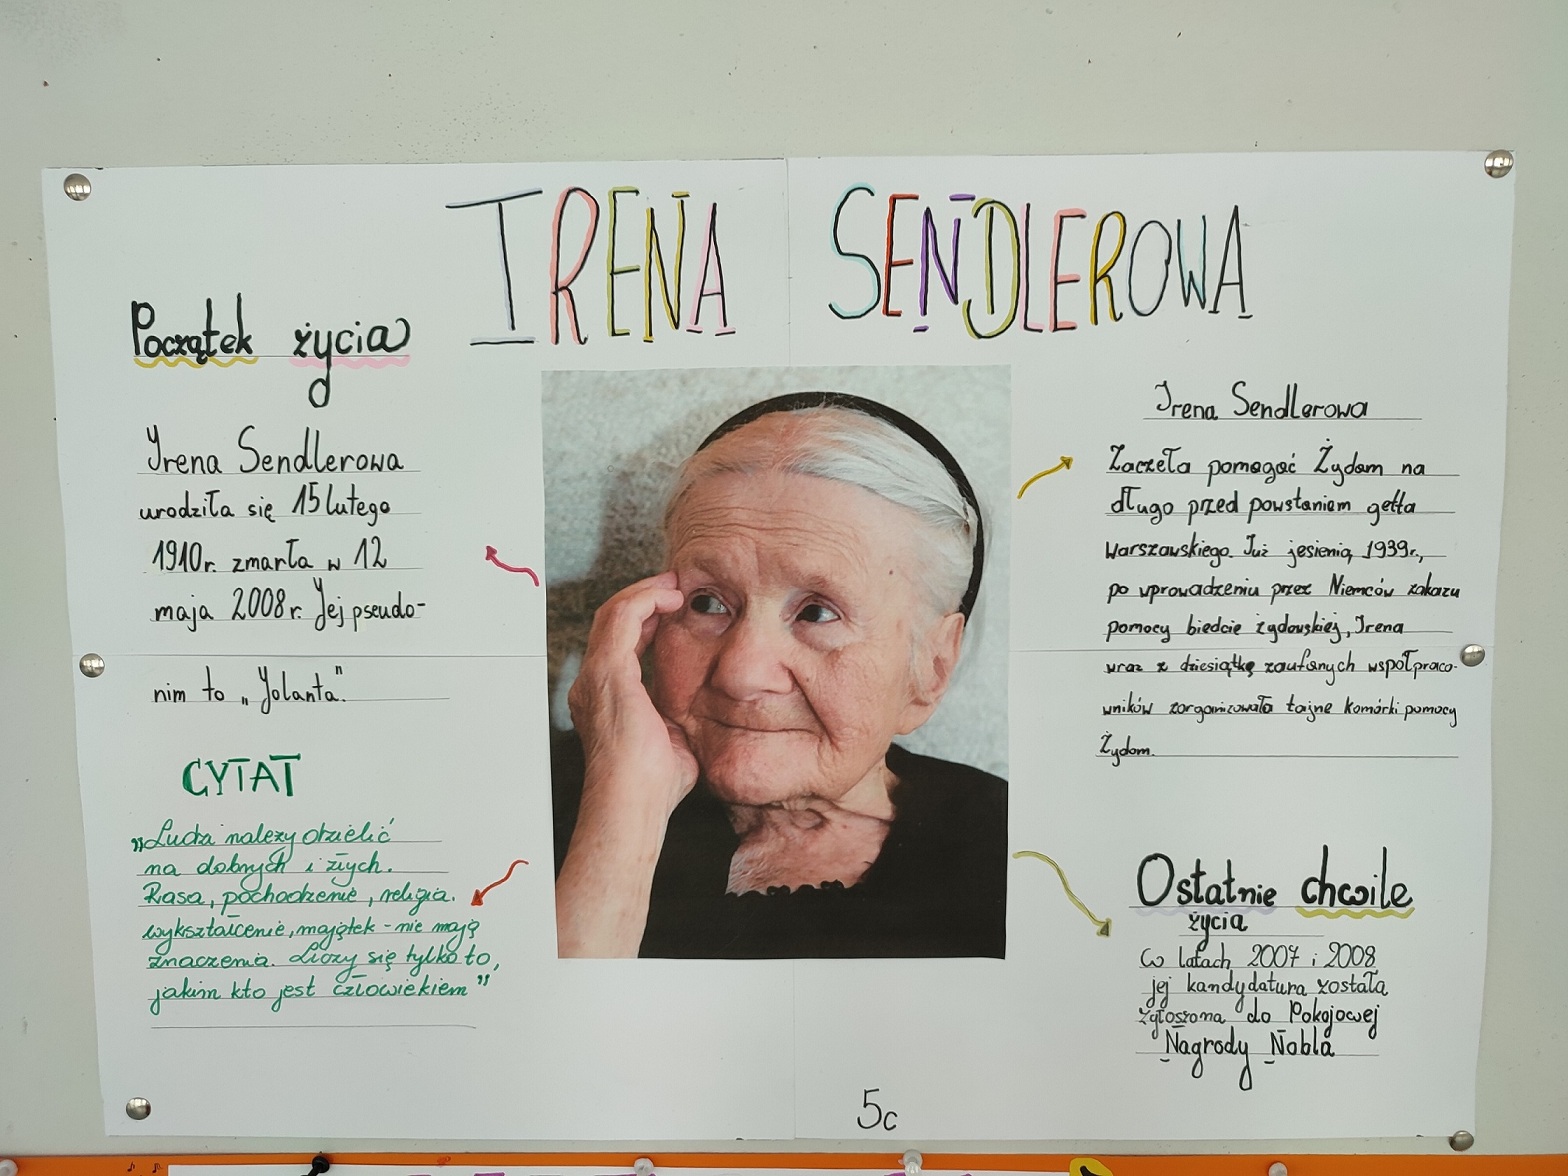 IRENA SENDLEROWA
Początek życia
Irena Sendlerowa
urodziła się 15 lutego
1910r. zmarła w 12
maja 2008r. Jej pseudo-
nim to „Jolanta".
CYTAT
„Ludzi należy dzielić
na dobrych i złych.
Rasa, pochodzenie, religia.
wykształcenie, majątek - nie mają
znaczenia. Liczy się tylko to,
jakim kto jest człowiekiem"
Irena Sendlerowa
Zaczeła pomagać Żydom na
długo przed powstaniem getta
Warszawskiego. Już jesienią, 1939r.,
po wprowadzeniu przez Niemców zakazu
pomocy biedcie żydowskiej, Irena
wraz z dziesiątką zaufanych współpraco-
wników zorganizowała tajne komórki pomocy
Żydom.
Ostatnie chwile
życia
W latach 2007 i 2008
jej kandydatura została
zgłoszona do Pokojowej
Nagrody Nobla
5c